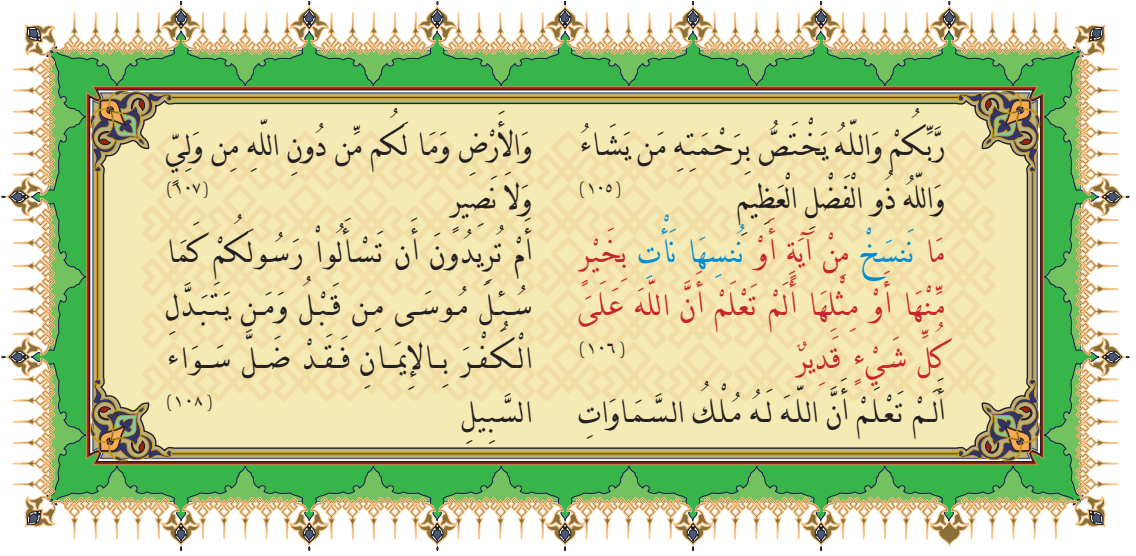 رَّبِّكُمْ وَاللّهُ يَخْتَصُّ بِرَحْمَتِهِ مَن يَشَاءُ
وَاللّهُ ذُو الْفَضْلِ الْعَظِيمِ (١٠٥)
مَا نَنسَخْ مِنْ آيَةٍ أَوْ نُنسِهَا نَأْتِ بِخَيْرٍ
مِّنْهَا أَوْ مِثْلِهَا أَلَمْ تَعْلَمْ أَنَّ اللّهَ عَلَىَ
كُلِّ شَيْءٍ قَدِيرٌ (١٠٦)
أَلَمْ تَعْلَمْ أَنَّ اللّهَ لَهُ مُلْكُ السَّمَاوَاتِ
وَالأَرْضِ وَمَا لَكُم مِّن دُونِ اللّهِ مِن وَلِيٍّ
وَلاَ نَصِيرٍ (١٠٧)
أَمْ تُرِيدُونَ أَن تَسْأَلُواْ رَسُولَكُمْ كَمَا
سُئِلَ مُوسَى مِن قَبْلُ وَمَن يَتَبَدَّلِ
الْكُفْرَ بِالإِيمَانِ فَقَدْ ضَلَّ سَوَاء
السَّبِيلِ (١٠٨)